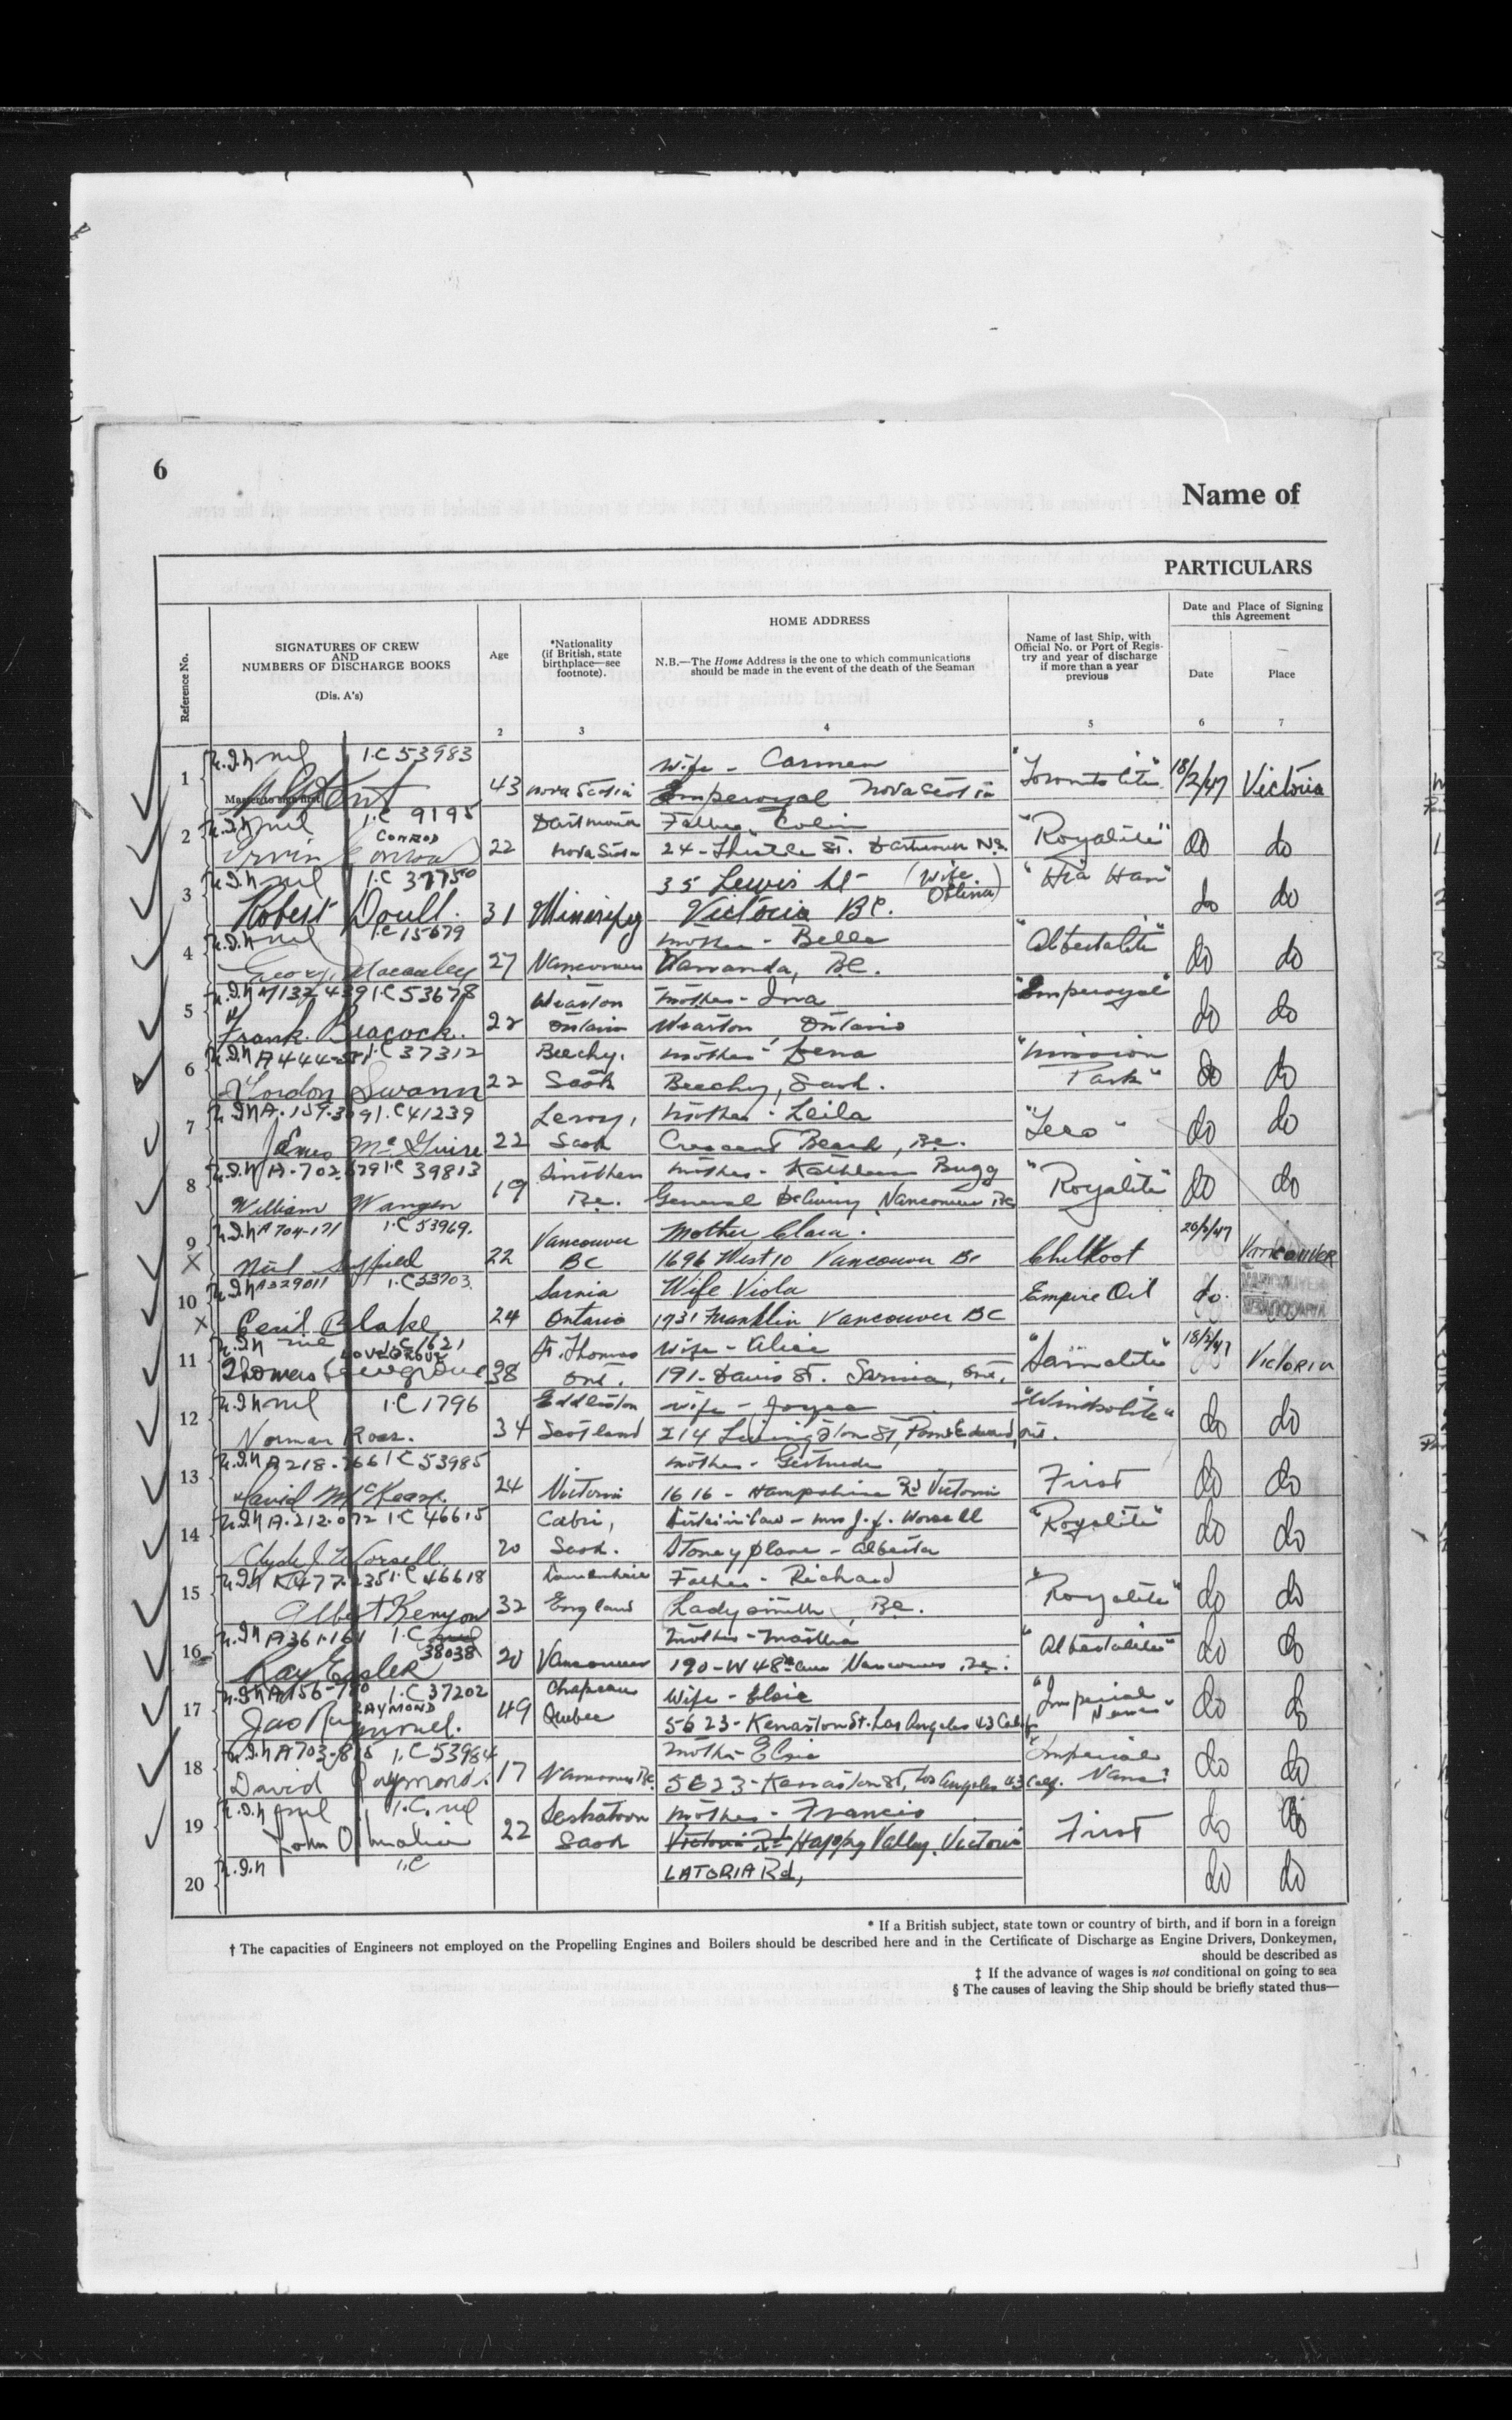 6
Name of
PARTICULARS
Reference No.
SIGNATURES OF CREW
AND
NUMBERS OF DISCHARGE BOOKS
(Dis. A's)
Age
2
*Nationality
(if British, state
birthplace—see
footnote).
3
HOME ADDRESS
N.B.—The Home Address is the one to which communications
should be made in the event of the death of the Seaman
4
Name of last Ship, with
Official No. or Port of Regis-
try and year of discharge
if more than a year
previous
5
Date and Place of Signing
this Agreement
Date
6
Place
7
1 U.I.N nil I.C 53983 Wife - Carmen
Master to sign first 43 Nova Scotia Imperoyal Nova Scotia "Torontolite" 18/2/47 Victoria
2 U.I.N nil I.C 9195 Dartmouth Father Colin
CONROD
Irvin Conrod 22 Nova Scotia 24 - Thistle St. Dartmouth N.S. "Royalite" do do
3 U.I.N nil I.C 37750 35 Lewis St - (Wife "Hia Han"
Robert Doull. 31 Winnipeg Victoria BC. do do
4 U.I.N nil I.C 15679 Mother - Bella
George Macauley 27 Vancouver Wananda, B.C. "Albertalite" do do
5 U.I.N I.C 53678 Wiarton Mother - Iva "Imperoyal"
Frank Beacock. 22 Ontario Wiarton Ontario do do
6 U.I.N A444 I.C 37312 Beechy. Mother - Lena "Mission
Gordon Swann 22 Sask Beechy, Sask. Park" do do
7 U.I.N A.159.3 91 I.C 41239 Leroy, Mother - Leila
James McGuire 22 Sask Crescent Beach, B.C. do do
8 U.I.N A.702.679 I.C 39813 Smithers Mother - Kathleen Bugg
William Wangen 19 B.C. General Delivery Vancouver B.C. "Royalite" do do
9 U.I.N A704-171 I.C 53969. Vancouver Mother Clara. 20/2/47
X Neil 22 BC 1696 West 10 Vancouver BC Chilkoot VANCOUVER
10 U.I.N A329011 I.C 53703 Sarnia Wife Viola
X Cecil Blake 24 Ontario 1731 Franklin Vancouver BC Empire Oil do.
11 U.I.N nil I.C 1621 St. Thomas Wife - Alice 18/2/47
LOVEGROVE
Thomas Lovegrove 38 Ont. 191 - Davis St. Sarnia, Ont. "Sarnolite" VICTORIA
12 U.I.N nil I.C 1796 Eddleston Wife - Joyce "Windsolite"
Norman Ross. 34 Scotland 214 Livingston St, Point Edward, Ont. do do
13 U.I.N A218.766 I.C 53985 Mother - Gertrude
David McKear. 24 Victoria 1616 - Hampshire Rd Victoria First do do
14 U.I.N A.212.072 I.C 46615 Cabri, Sister in law - Mrs J. J. Worsell
Clyde J. Worsell. 20 Sask. Stoney plane - Alberta "Royalite" do do
15 U.I.N I.C 46618 Father - Richard
Albert Kenyon 32 England Ladysmith, B.C. "Royalite" do do
16 U.I.N A361.161 I.C nil Mother - Martha
38038
Ray 20 Vancouver 190 - W 48th ave Vancouver B.C. "Albertalite" do do
17 U.I.N A156-780 I.C 37202 Chapeau Wife - Elsie "Imperial
RAYMOND
Jas Raymond. 49 Quebec 5623 - Kenaston St. Los Angeles 43 Calif do do
18 U.I.N A703-818 I.C 53984 Mother - Elsie "Imperial
David Raymond. 17 Vancouver B.C. 5623 - Kenaston St, Los Angeles 43 Calif. do do
19 U.I.N nil I.C. nil Saskatoon Mother - Francis
John 22 Sask Victoria Rd Happy Valley. Victoria First do do
20 U.I.N I.C LATORIA Rd, do do
* If a British subject, state town or country of birth, and if born in a foreign
† The capacities of Engineers not employed on the Propelling Engines and Boilers should be described here and in the Certificate of Discharge as Engine Drivers, Donkeymen,
should be described as
‡ If the advance of wages is not conditional on going to sea
§ The causes of leaving the Ship should be briefly stated thus—